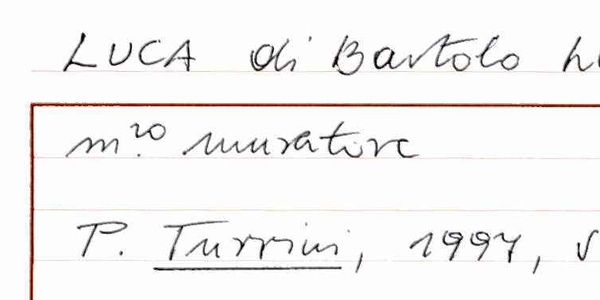 LUCA di Bartolo
m.ro muratore
P. Turrini, 1997,